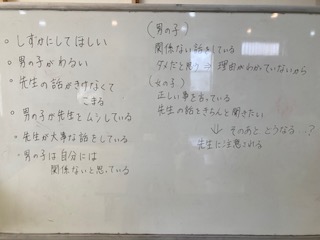 • しずかにしてほしい
• 男の子がわるい
• 先生の話がきけなくて
こまる
• 男の子が先生をムシしている
• 先生が大事な話をしている
• 男の子は自分には
関係ないと思っている
(男の子)
関係ない話をしている
ダメだと思う ⇒ 理由がわかっていないから
(女の子)
正しい事を言っている
先生の話をきちんと聞きたい
↓ そのあと どうなる…?
先生に注意される